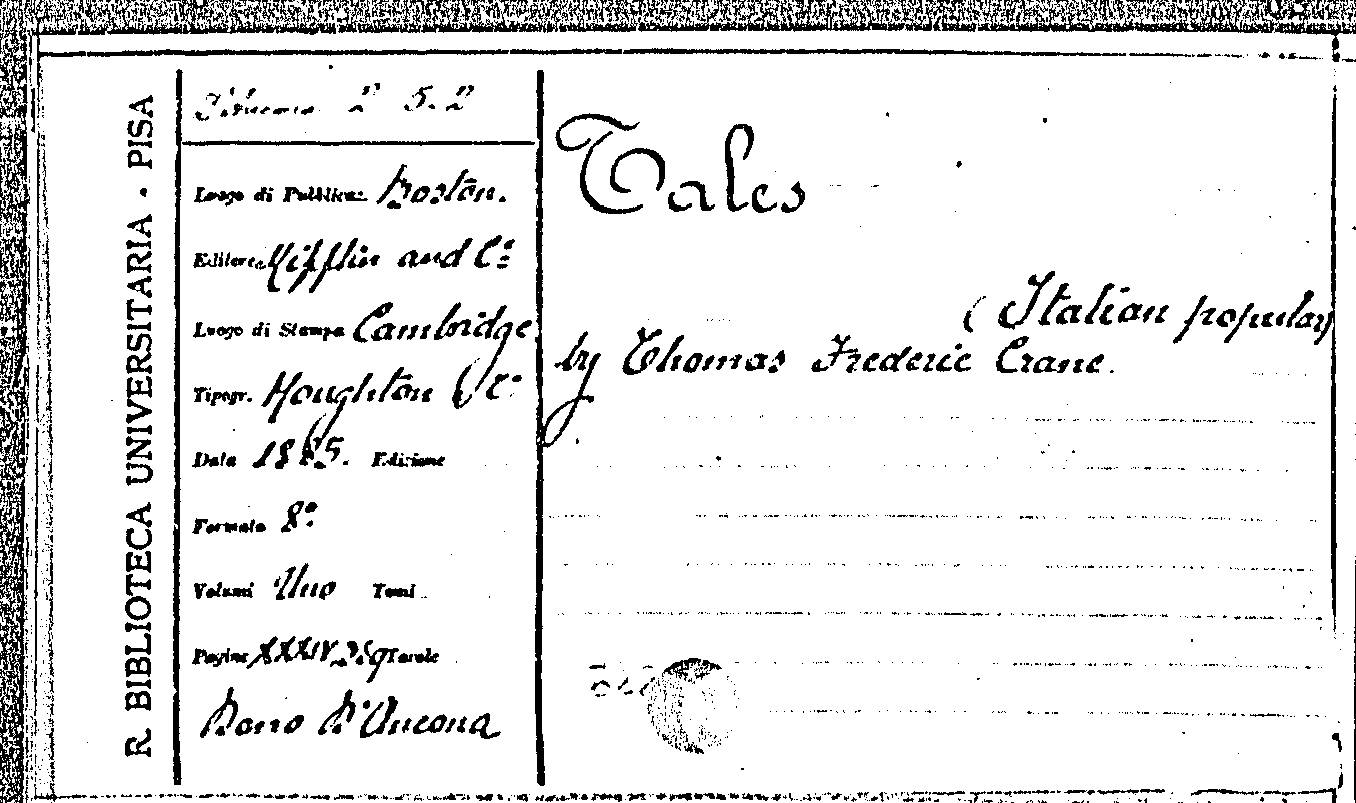 R. BIBLIOTECA UNIVERSITARIA · PISA
2 5.2
Luogo di Pubblicaz. Boston.
Editore Mifflin and C.º
Luogo di Stampa Cambridge
Tipogr. Houghton & C.º
Data 1885. Edizione
Formato 8.º
Volumi Uno Tomi
Pagine XXXIV. Tavole
Dono D'Ancona
Tales
(Italian popular)
by Thomas Frederic Crane.